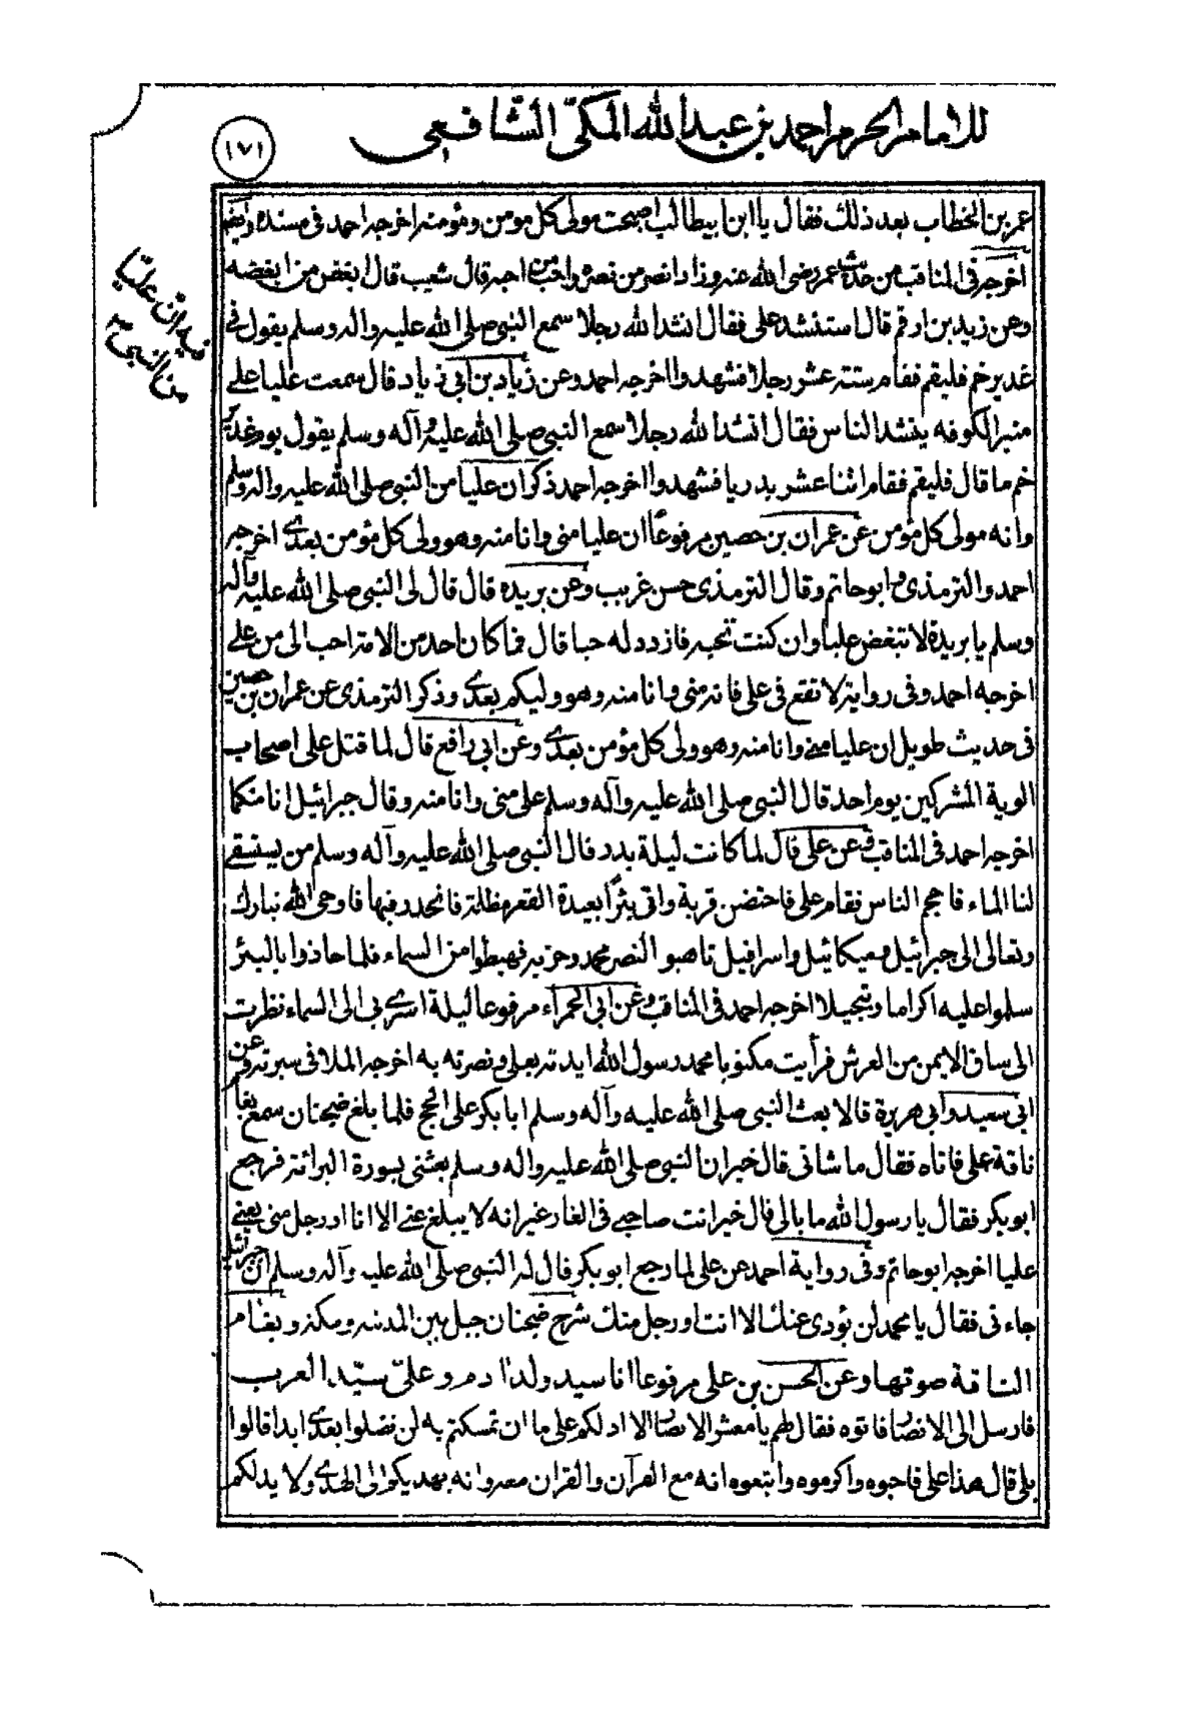 للامام الحرم احمد بن عبد الله المكىّ الشّافعى
١٧١
عمر بن الخطاب بعد ذلك فقال يا ابن ابيطالب اصبحت مولى كل مومن ومؤمنه اخرجه احمد فى مسنده وايضا
اخرجه فى المناقب من حديث عمر رضى الله عنه وزاد وانصر من نصره واحب من احبه قال شعيب قال ابغض من ابغضه
وعن زيد بن ارقم قال استنشد على فقال انشد الله رجلا سمع النبى صلى الله عليه واله وسلم يقول فى
غدير خم فليقم فقام ستة عشر رجلا فشهدوا اخرجه احمد وعن زياد بن ابى زياد قال سمعت عليا على
منبر الكوفه ينشد الناس فقال انشد الله رجلا سمع النبى صلى الله عليه وآله وسلم يقول يوم غدير
خم ما قال فليقم فقام اثنا عشر بدريا فشهدوا اخرجه احمد ذكر ان عليا من النبى صلى الله عليه واله وسلم
وانه مولى كل مؤمن عن عمران بن حصين مرفوعًا ان عليا منى وانا منه وهو ولى كل مؤمن بعدى اخرجه
احمد والترمذى وابو حاتم وقال الترمذى حسن غريب وعن بريده قال قال لى النبى صلى الله عليه وآله
وسلم يا بريدة لا تبغض عليا وان كنت تحبه فازدد له حبا قال فما كان احد من الامة احب الى من على
اخرجه احمد وفى رواية لا تقع فى على فانه منى وانا منه وهو وليكم بعدى وذكر الترمذى عن عمران بن حصين
فى حديث طويل ان عليا منى وانا منه وهو ولى كل مؤمن بعدى وعن ابى رافع قال لما قتل على اصحاب
الوية المشركين يوم احد قال النبى صلى الله عليه وآله وسلم على منى وانا منه وقال جبرائيل انا منكما
اخرجه احمد فى المناقب وعن على قال لما كانت ليلة بدر قال النبى صلى الله عليه وآله وسلم من يستقى
لنا الماء فاحجم الناس فقام على فاحتضن قربة واتى بئرًا بعيدة القعر مظلة فانحدر فيها فاوحى الله تبارك
وتعالى الى جبرائيل وميكائيل واسرافيل تاهبوا لنصر محمد وحزبه فهبطوا من السماء فلما حاذوا بالبئر
سلموا عليه اكراما وتبجيلا اخرجه احمد فى المناقب وعن ابى الحمراء مرفوعا ليلة اسرى بى الى السماء نظرت
الى ساق الايمن من العرش فرأيت مكتوبا محمد رسول الله ايدته بعلى ونصرته به اخرجه الملا فى سيرته وعن
ابى سعيد وابى هريرة قالا بعث النبى صلى الله عليه وآله وسلم ابا بكر على الحج فلما بلغ ضجنان سمع بغام
ناقة على فاتاه فقال ما شانى قال خير ان النبى صلى الله عليه واله وسلم بعثنى بسورة البرائة فرجع
ابو بكر فقال يا رسول الله ما بالى قال خير انت صاحبى فى الغار غير انه لا يبلغ عنى الا انا او رجل منى يعنى
عليا اخرجه ابو حاتم وفى رواية احمد عن على لما رجع ابو بكر قال له النبى صلى الله عليه وآله وسلم ان جبرائيل
جاءنى فقال يا محمد لن يؤدى عنك الا انت او رجل منك شرح ضجنان جبل بين المدينه ومكه وبغام
الناقة صوتها وعن الحسن بن على مرفوعا انا سيد ولد ادم وعلىّ سيّد العرب
فارسل الى الانصار فاتوه فقال لهم يا معشر الانصار الا ادلكم على ما ان تمسكتم به لن تضلوا بعدى ابدا قالوا
بلى قال هذا على فاحبوه واكرموه واتبعوه انه مع القرآن والقران معه وانه يهديكم الى الهدى ولا يدلكم
فيه انّ عليّا
من النبى ٣